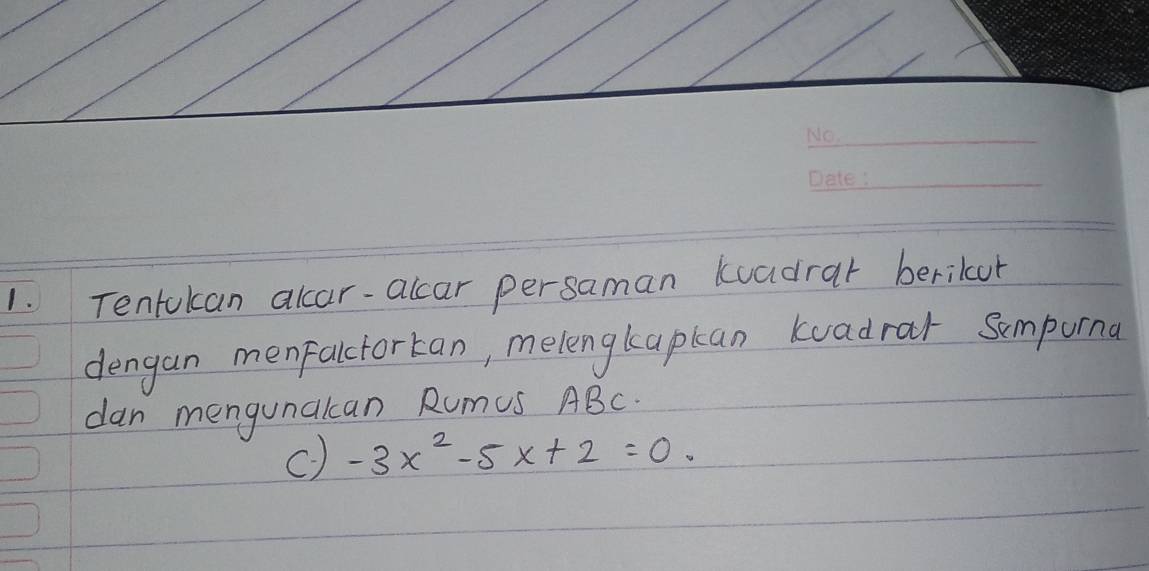 No.
Date :
1. Tentukan akar-akar persaman kuadrat berikut
dengan menfaktorkan, melengkapkan kuadrat sempurna
dan mengunakan Rumus ABC.
C.) -3x² -5x + 2 = 0.